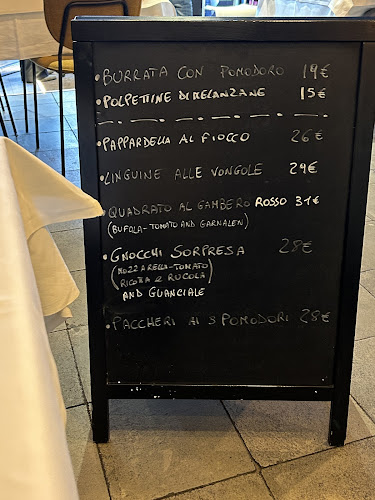 • BURRATA CON POMODORO 19€
• POLPETTINE DI MELANZANE 15€
• PAPPARDELLA AL FIOCCO 26€
• LINGUINE ALLE VONGOLE 29€
• QUADRATO AL GAMBERO ROSSO 31€
(BUFALA-TOMATO AND GARNALEN)
• GNOCCHI SORPRESA 28€
(MOZZARELLA-TOMATO)
RICOTTA E RUCOLA)
AND GUANCIALE
• PACCHERI AI 3 POMODORI 28€